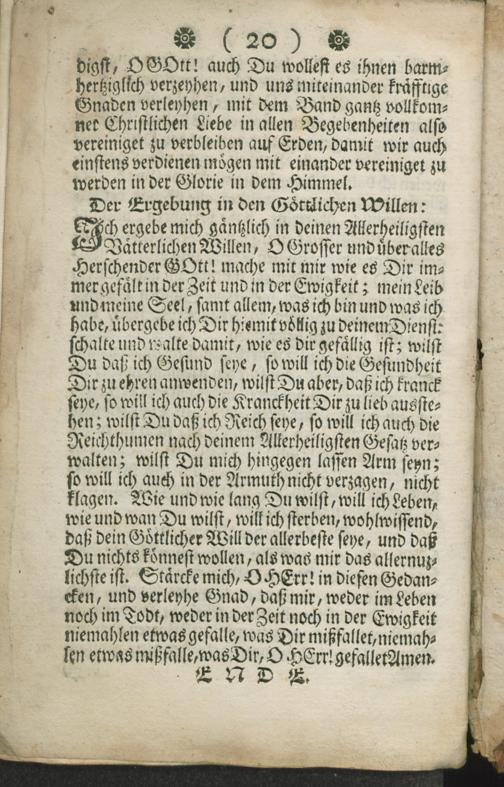 ( 20 )
digst, O GOtt! auch Du wollest es ihnen barm-
hertziglich verzeyhen, und uns miteinander kräfftige
Gnaden verleyhen, mit dem Band gantz vollkom-
ner Christlichen Liebe in allen Begebenheiten also
vereiniget zu verbleiben auf Erden, damit wir auch
einstens verdienen mögen mit einander vereiniget zu
werden in der Glorie in dem Himmel.
Der Ergebung in den Göttlichen Willen:
Ich ergebe mich gäntzlich in deinen Allerheiligsten
Vätterlichen Willen, O Grosser und über alles
Herschender GOtt! mache mit mir wie es Dir im-
mer gefält in der Zeit und in der Ewigkeit; mein Leib
und meine Seel, samt allem, was ich bin und was ich
habe, übergebe ich Dir hiemit völlig zu deinem Dienst:
schalte und walte damit, wie es dir gefällig ist; wilst
Du daß ich Gesund seye, so will ich die Gesundheit
Dir zu ehren anwenden, wilst Du aber, daß ich kranck
seye, so will ich auch die Kranckheit Dir zu lieb ausste-
hen; wilst Du daß ich Reich seye, so will ich auch die
Reichthumen nach deinem Allerheiligsten Gesatz ver-
walten; wilst Du mich hingegen lassen Arm seyn;
so will ich auch in der Armuth nicht verzagen, nicht
klagen. Wie und wie lang Du wilst, will ich Leben,
wie und wan Du wilst, will ich sterben, wohlwissend,
daß dein Göttlicher Will der allerbeste seye, und daß
Du nichts könnest wollen, als was mir das allernuz-
lichste ist. Stärcke mich, O HErr! in diesen Gedan-
cken, und verleyhe Gnad, daß mir, weder im Leben
noch im Todt, weder in der Zeit noch in der Ewigkeit
niemahlen etwas gefalle, was Dir mißfallet, niemah-
len etwas mißfalle, was Dir, O HErr! gefallet Amen.
E N D E.